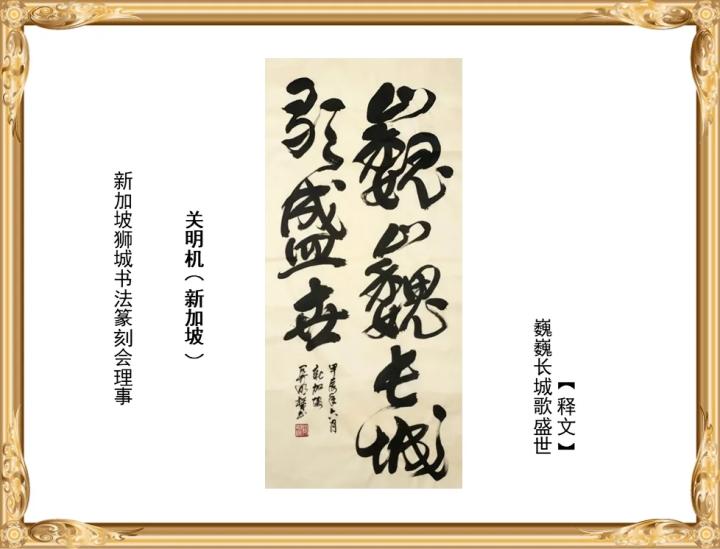 【释文】
巍巍长城歌盛世
巍巍长城
歌盛世
甲辰年六月
新加坡
关明机书
关明机（新加坡）
新加坡狮城书法篆刻会理事